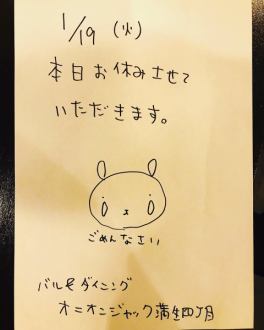 1/19 (火)
本日お休みさせて
いただきます。
ごめんなさい
バル&ダイニング
オニオンジャック蒲生四丁目